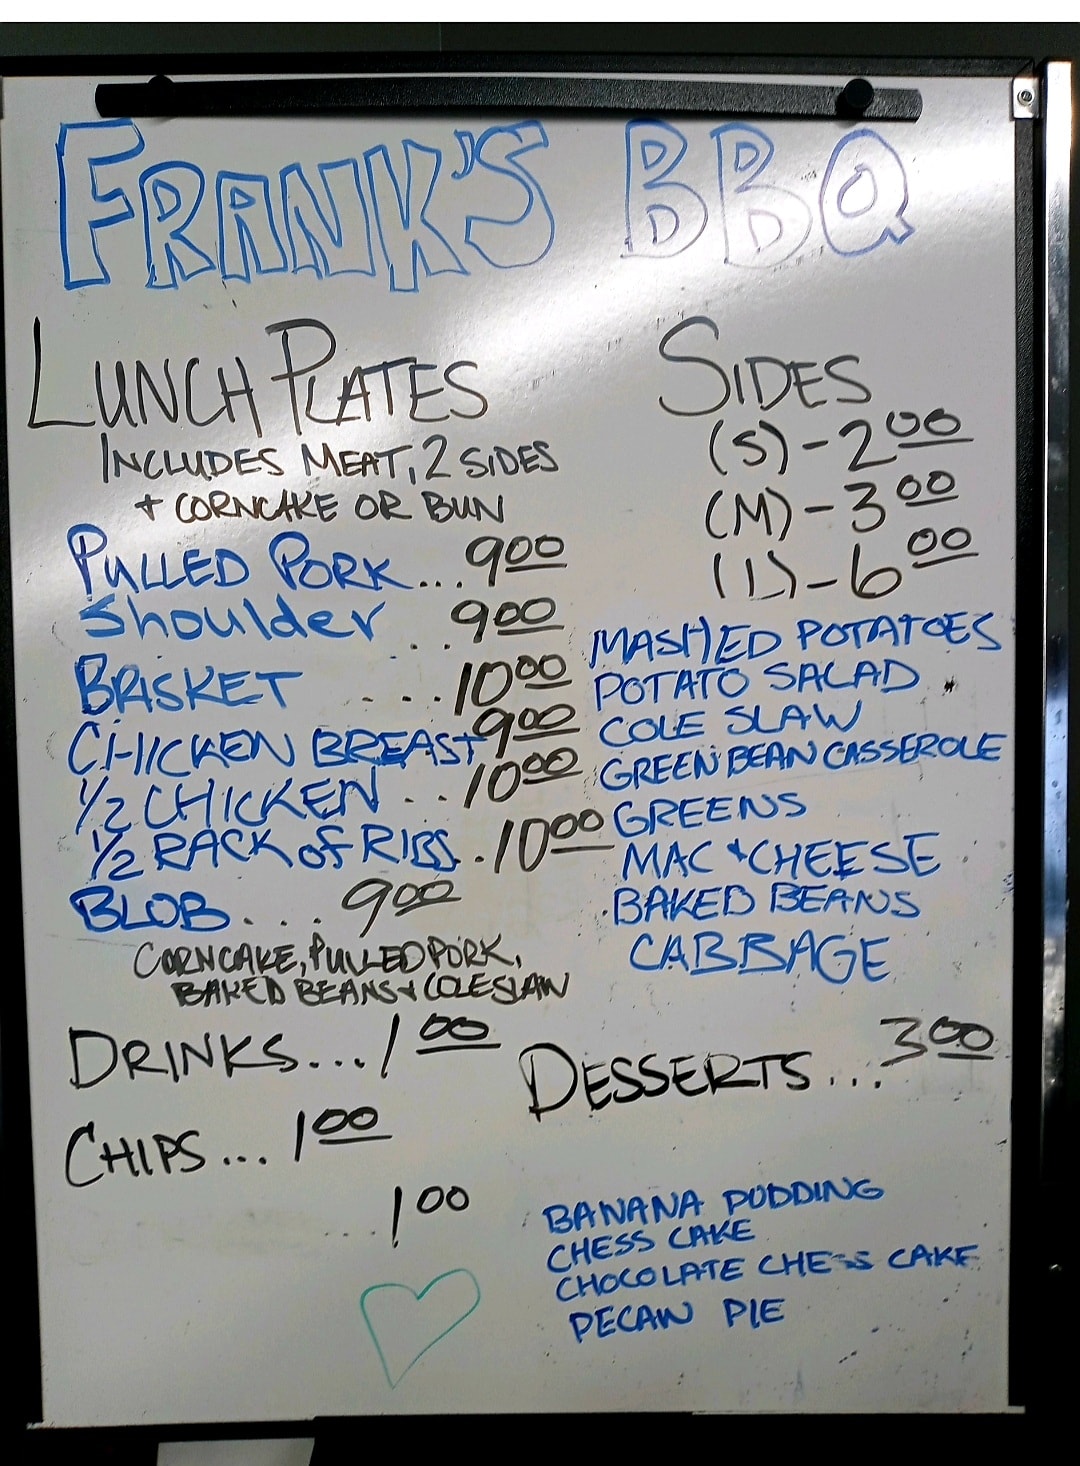 FRANK'S BBQ
LUNCH PLATES
INCLUDES MEAT, 2 SIDES
+ CORNCAKE OR BUN
PULLED PORK... 9.00
Shoulder ... 9.00
BRISKET ... 10.00
CHICKEN BREAST 9.00
1/2 CHICKEN ... 10.00
1/2 RACK OF RIBS .. 10.00
BLOB... 9.00
CORNCAKE, PULLED PORK,
BAKED BEANS + COLESLAW
SIDES
(S) - 2.00
(M) - 3.00
(L) - 6.00
MASHED POTATOES
POTATO SALAD
COLE SLAW
GREEN BEAN CASSEROLE
GREENS
MAC + CHEESE
BAKED BEANS
CABBAGE
DRINKS... 1.00
CHIPS... 1.00
... 1.00
DESSERTS... 3.00
BANANA PUDDING
CHESS CAKE
CHOCOLATE CHESS CAKE
PECAN PIE